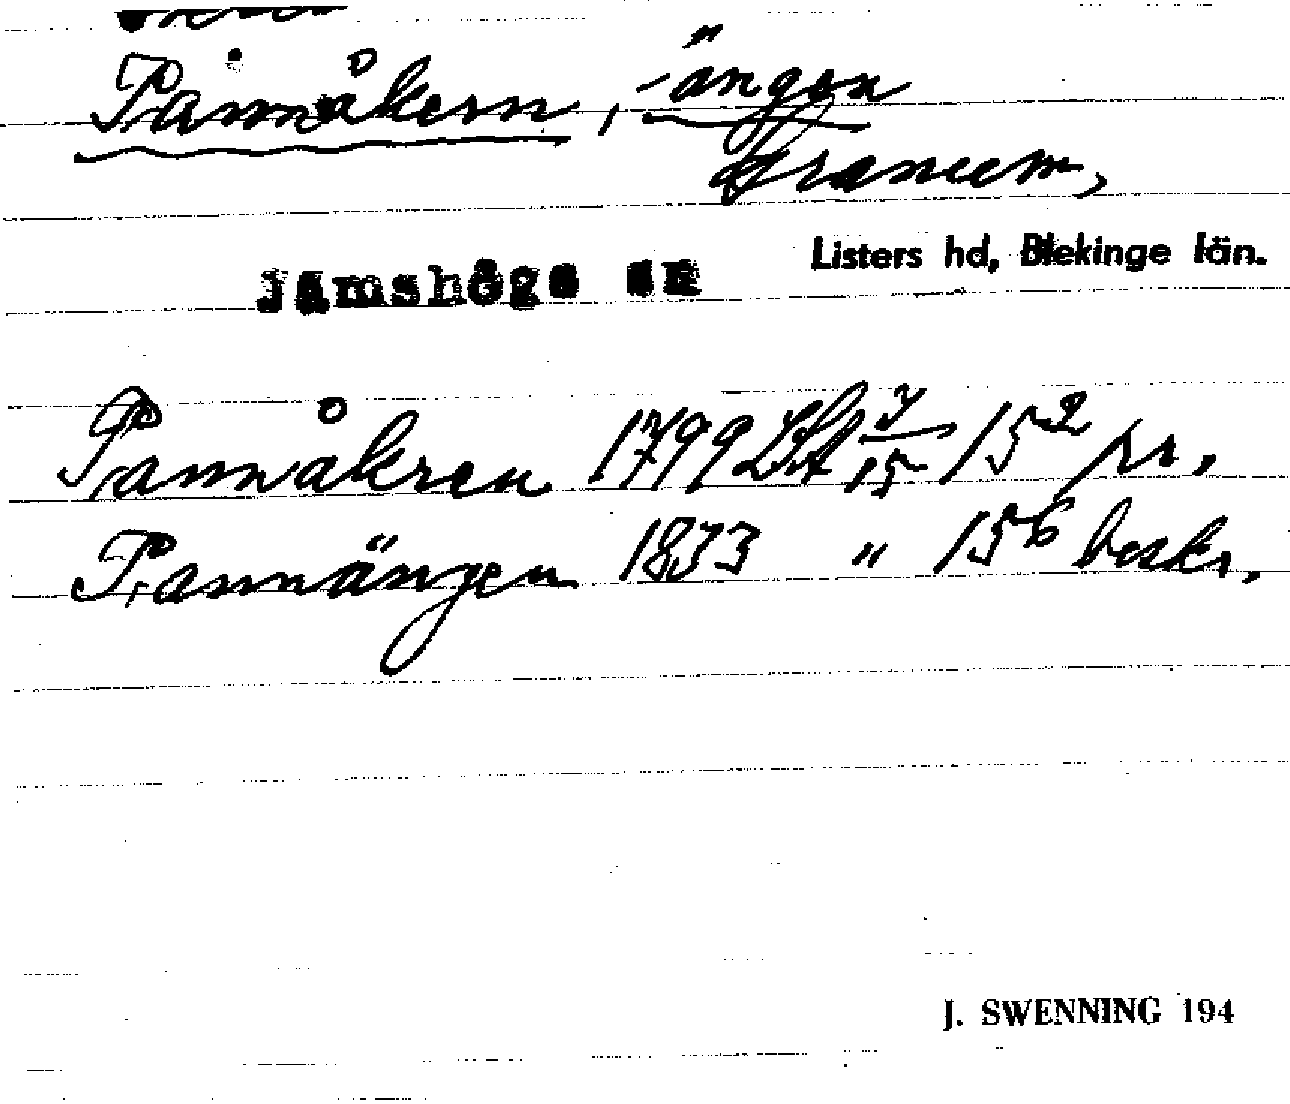 Pannåkern, -ängen
Granum,
Jämshögs sn Listers hd, Blekinge län.
Pannåkren 1799 LSA 7/15 15² pr.
Pannängen 1833 " 15⁶ beskr.
J. SWENNING 194